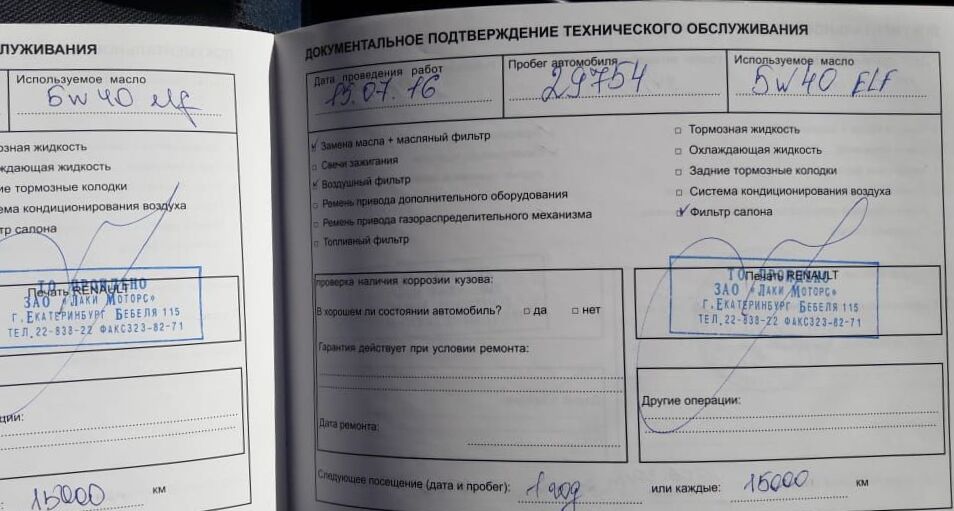 ЛУЖИВАНИЯ
Используемое масло
5w40 elf
зная жидкость
ждающая жидкость
ие тормозные колодки
ема кондиционирования воздуха
тр салона
Печать RENAULT
ТО ПРОЙДЕНО
ЗАО "ЛАКИ МОТОРС"
Г.ЕКАТЕРИНБУРГ БЕБЕЛЯ 115
ТЕЛ.22-838-22 ФАКС323-82-71
ции:
: 15000 км
ДОКУМЕНТАЛЬНОЕ ПОДТВЕРЖДЕНИЕ ТЕХНИЧЕСКОГО ОБСЛУЖИВАНИЯ
Дата проведения работ
15.07.16
Пробег автомобиля
29754
Используемое масло
5W40 ELF
Замена масла + масляный фильтр
Свечи зажигания
Воздушный фильтр
Ремень привода дополнительного оборудования
Ремень привода газораспределительного механизма
Топливный фильтр
Тормозная жидкость
Охлаждающая жидкость
Задние тормозные колодки
Система кондиционирования воздуха
Фильтр салона
проверка наличия коррозии кузова:
В хорошем ли состоянии автомобиль? да нет
Гарантия действует при условии ремонта:
Дата ремонта:
Печать RENAULT
ТО ПРОЙДЕНО
ЗАО "ЛАКИ МОТОРС"
Г.ЕКАТЕРИНБУРГ БЕБЕЛЯ 115
ТЕЛ.22-838-22 ФАКС323-82-71
Другие операции:
Следующее посещение (дата и пробег): 1 год или каждые: 15000 км